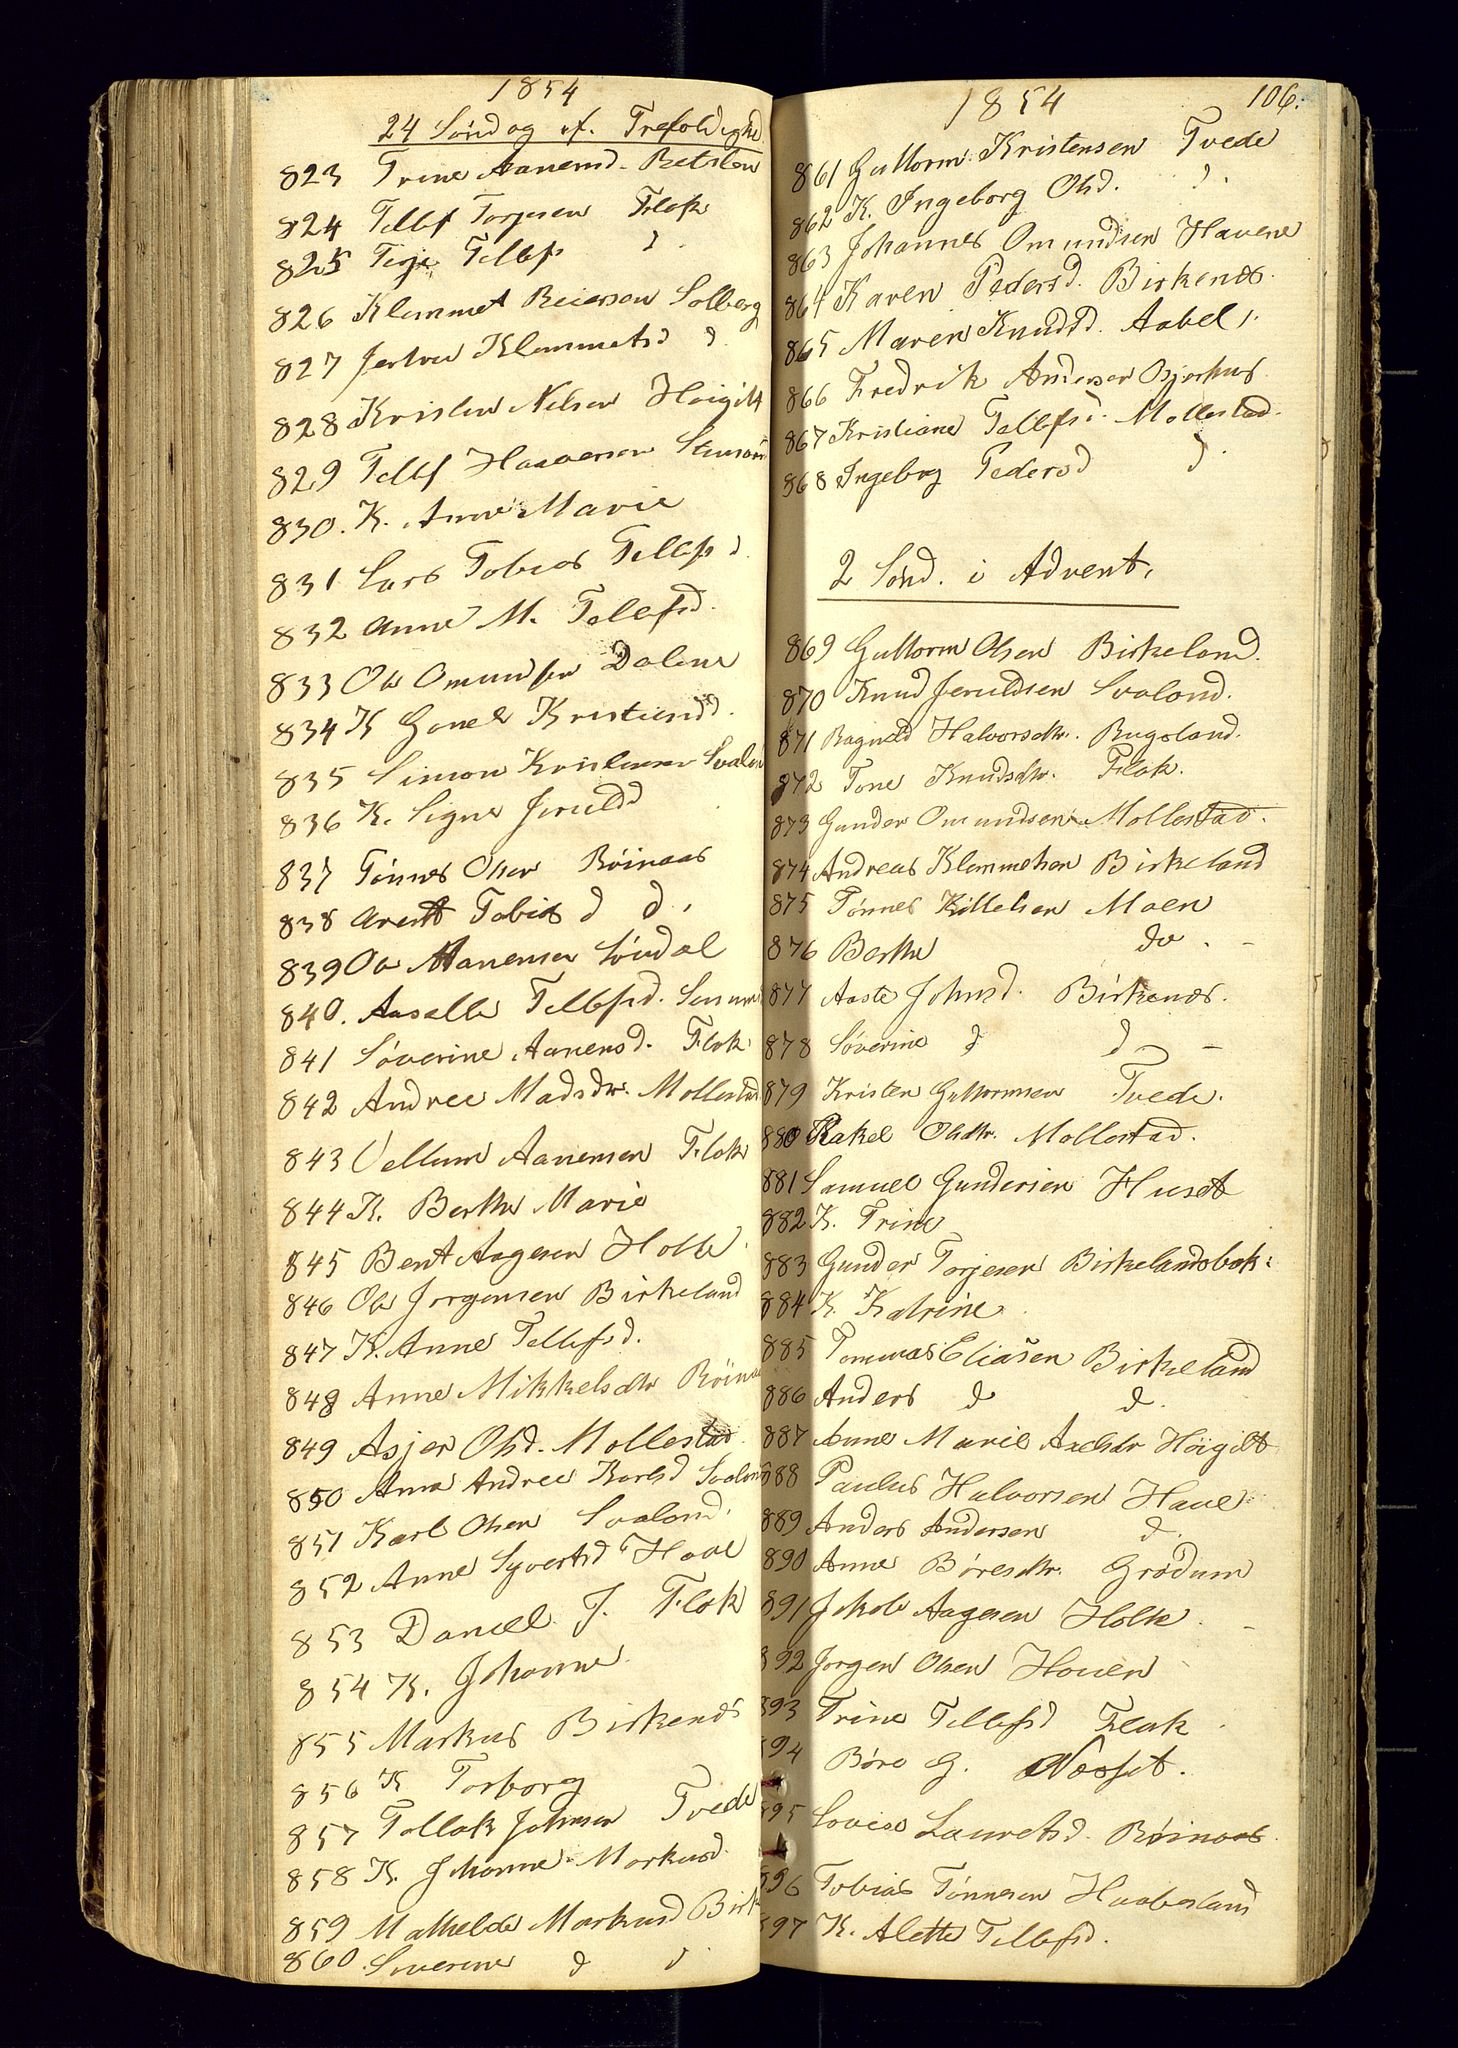 1854
24 Søndag ef. Trefoldighd
823 Trine Aanensd. Retsløv
824 Tellef Torjesen Flak
825 Terje Tellefs d.
826 Klemmet Reiersen Solberg
827 Jertru Klemmetsd d
828 Kristen Nelsen Høigilt
829 Tellef Haaversen
830. K. Anne Marie
831 Lars Tobias Tellefsd.
832 Anne M. Tellefsd.
833 Ole Omundsen Dalene
834 K Gonel Kristensd.
835 Simon Kristensen Svalan
836 K. Signe Jeruldsd
837 Tønnes Olsen Röinaas
838 Arent Tobias d d.
839 Ole Aanensen Søndal
840. Aaselle Tellefsd.
841 Søverine Aanensd. Flak
842 Andree Madsdtr. Mollestad
843 Vellum Aanensen Flak
844 K. Berthe Marie
845 Bent Aagesen Holte
846 Ole Jørgensen Birkeland
847 K. Anne Tellefsd.
848 Anne Mikkelsdtr Röinaa
849 Asjer Olsd. Mollestad
850 Anne Andree Karlsd Svaland
851 Karl Olsen Svaland.
852 Anne Syvertsd Have
853 Daniel J. Flak
854 K. Johanne
855 Markus Birkenæs
856 K Torborg
857 Tellak Johnsen Tvede
858 K. Johanne Markusd
859 Mathelde Markusd Birk
860 Severine d d
1854 106.
861 Guttorm Kristensen Tvede
862 K. Ingeborg Olsd. d.
863 Johannes Omundsen Havene
864 Karen Pedersd. Birkenæs
865 Maren Knudsd. Aabel.
866 Fredrik Andersen Bjorhus
867 Kristiane Tellefsd. Mollestad.
868 Ingeborg Pedersd d.
2 Sønd. i Advent.
869 Guttorm Olsen Birkeland.
870 Knud Jeruldsen Svaland.
871 Ragnild Halvorsdtr. Rugsland.
872 Tone Knudsdtr. Flak.
873 Gunder Omundsen Mollestad.
874 Andreas Klemmetsen Birkeland
875 Tønnes Killelsen Moen
876 Berthe do. -
877 Aaste Johnsd. Birkenæs.
878 Søverine d d -
879 Kristen Guttormsen Tvede.
880 Rakel Olsdtr. Mollestad.
881 Samuel Gundersen Huset
882 K. Trine
883 Gunder Torjesen Birkelandsbak.
884 K Katrine
885 Tommas Eliasen Birkeland
886 Anders d d.
887 Anne Marie Axelsdr Høigilt
888 Paulus Halvorsen Have
889 Anders Andersen d.
890 Anne Børesdtr. Grødum
891 Jakob Aagesen Holte -
892 Jørgen Olsen Hauen
893 Trine Tellefsd Flak
894 Børe G. Næsset.
895 Lovise Lauretsd. Røinaas.
896 Tobias Tønnesen Haabesland
897 K. Alette Tellefsd.